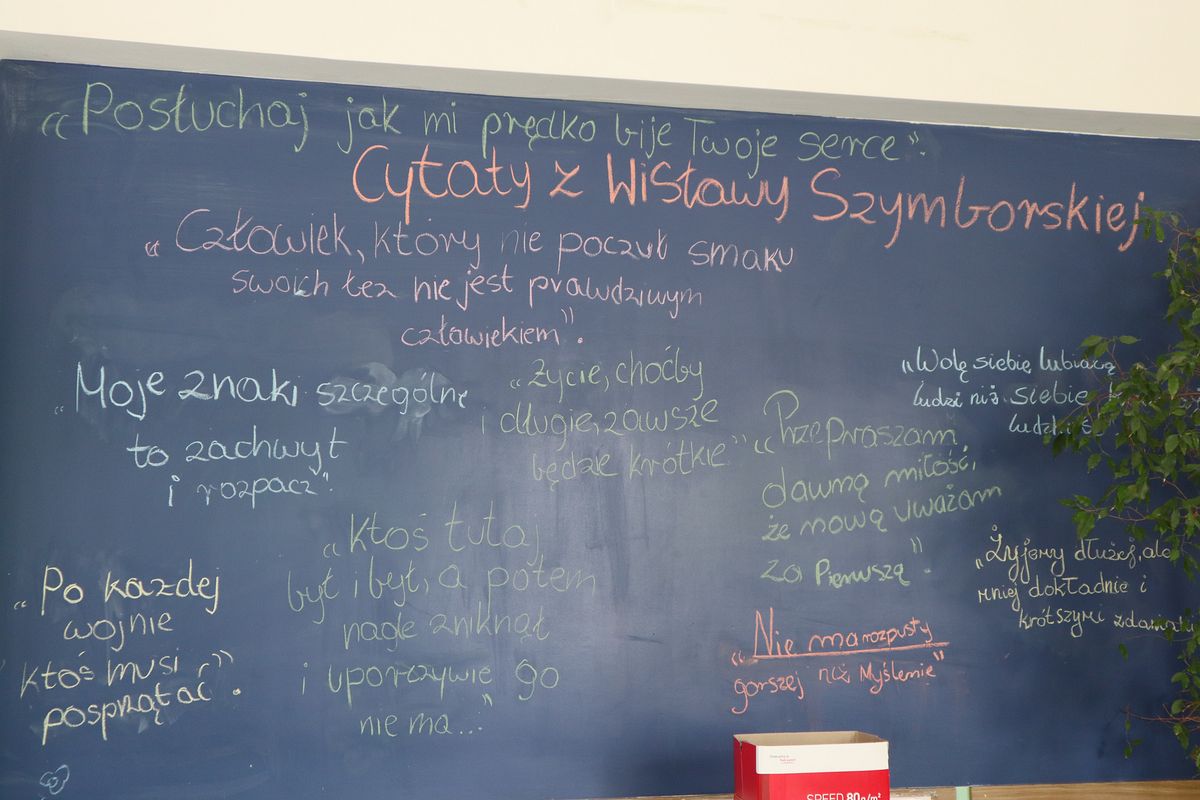 "Posłuchaj jak mi prędko bije Twoje serce".
Cytaty z Wisławy Szymborskiej
"Człowiek, który nie poczuł smaku
swoich łez nie jest prawdziwym
człowiekiem".
"Moje znaki szczególne
to zachwyt
i rozpacz".
"Życie, choćby
i długie, zawsze
będzie krótkie"
"Przepraszam
dawną miłość,
że nową uważam
za Pierwszą".
"Wolę siebie lubiącą
ludzi niż siebie
"Po każdej
wojnie
ktoś musi
posprzątać".
"Ktoś tutaj
był i był, a potem
nagle zniknął
i uporczywie go
nie ma..."
"Nie ma rozpusty
gorszej niż Myślenie"
"Żyjemy dłużej, ale
mniej dokładnie i
krótszymi zdaniami
SPEED 80g/m²